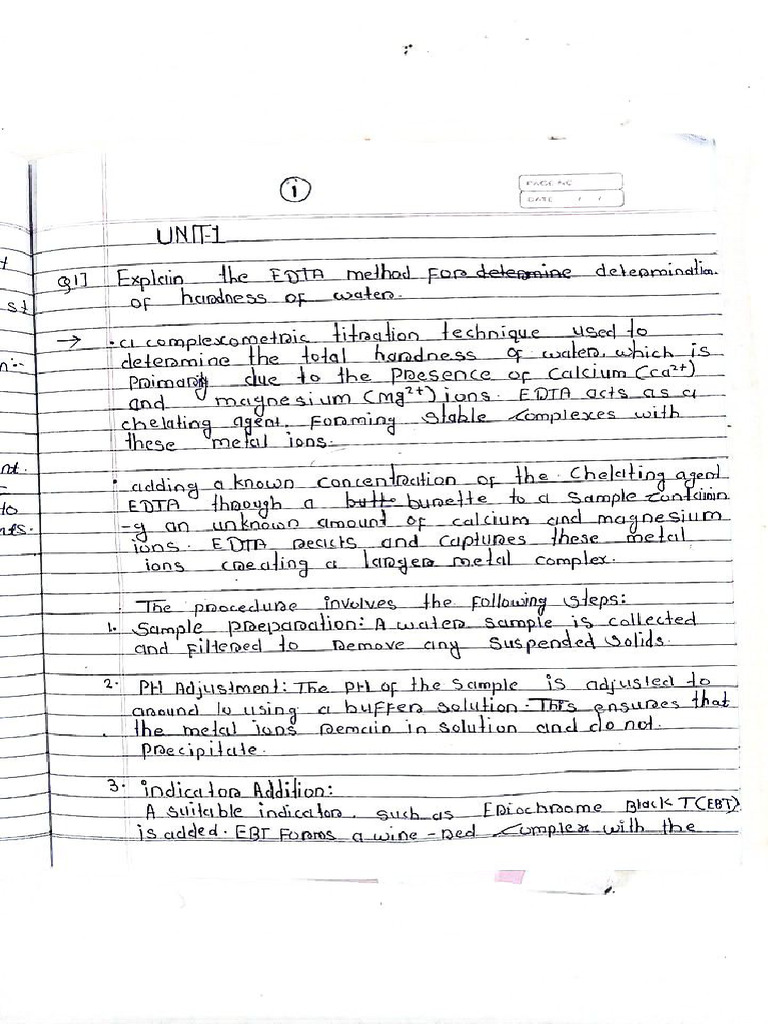 i
PAGE NO
DATE / /
UNIT-1
t
Q1] Explain the EDTA method for determine determination
st
of hardness of water.
→ • a complexometric titration technique used to
determine the total hardness of water, which is
n:-
primarily due to the presence of calcium (ca²⁺)
and magnesium (mg²⁺) ions. EDTA acts as a
chelating agent, forming stable complexes with
these metal ions.
nd.
• adding a known concentration of the chelating agent
to
EDTA through a butte burette to a sample containin
nts.
-g an unknown amount of calcium and magnesium
ions. EDTA reacts and captures these metal
ions creating a larger metal complex.
The procedure involves the following steps:
1. Sample preparation: A water sample is collected
and filtered to remove any suspended solids.
2. PH Adjustment: The PH of the sample is adjusted to
around 10 using a buffer solution. This ensures that
the metal ions remain in solution and do not
precipitate.
3. indicator Addition:
A suitable indicator, such as Eriochrome Black T (EBT)
is added. EBT forms a wine-red complex with the